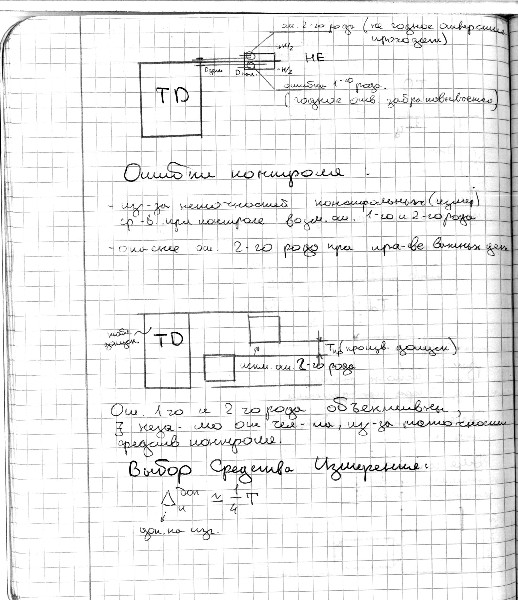 ош. 2-го рода (не годное отверстие
проходит)
+H/2
НЕ
D
D
-H/2
TD
ошибка 1-го рода.
(годное отв забраковывается)
Ошибки контроля.
- из-за неточностей контрольных (измер)
ср-в при контроле возм. ош. 1-го и 2-го рода
- опаснее ош. 2-го рода при пр-ве важных дет
TD
Tпр (произв. допуск)
ош. 2-го рода
Ош. 1го и 2 го рода объективны,
незав-мо от чел-ка, из-за неточности
средств контроля.
Выбор Средства Измерения:
Δ доп и ≈ 1/4 T
доп. на изг.